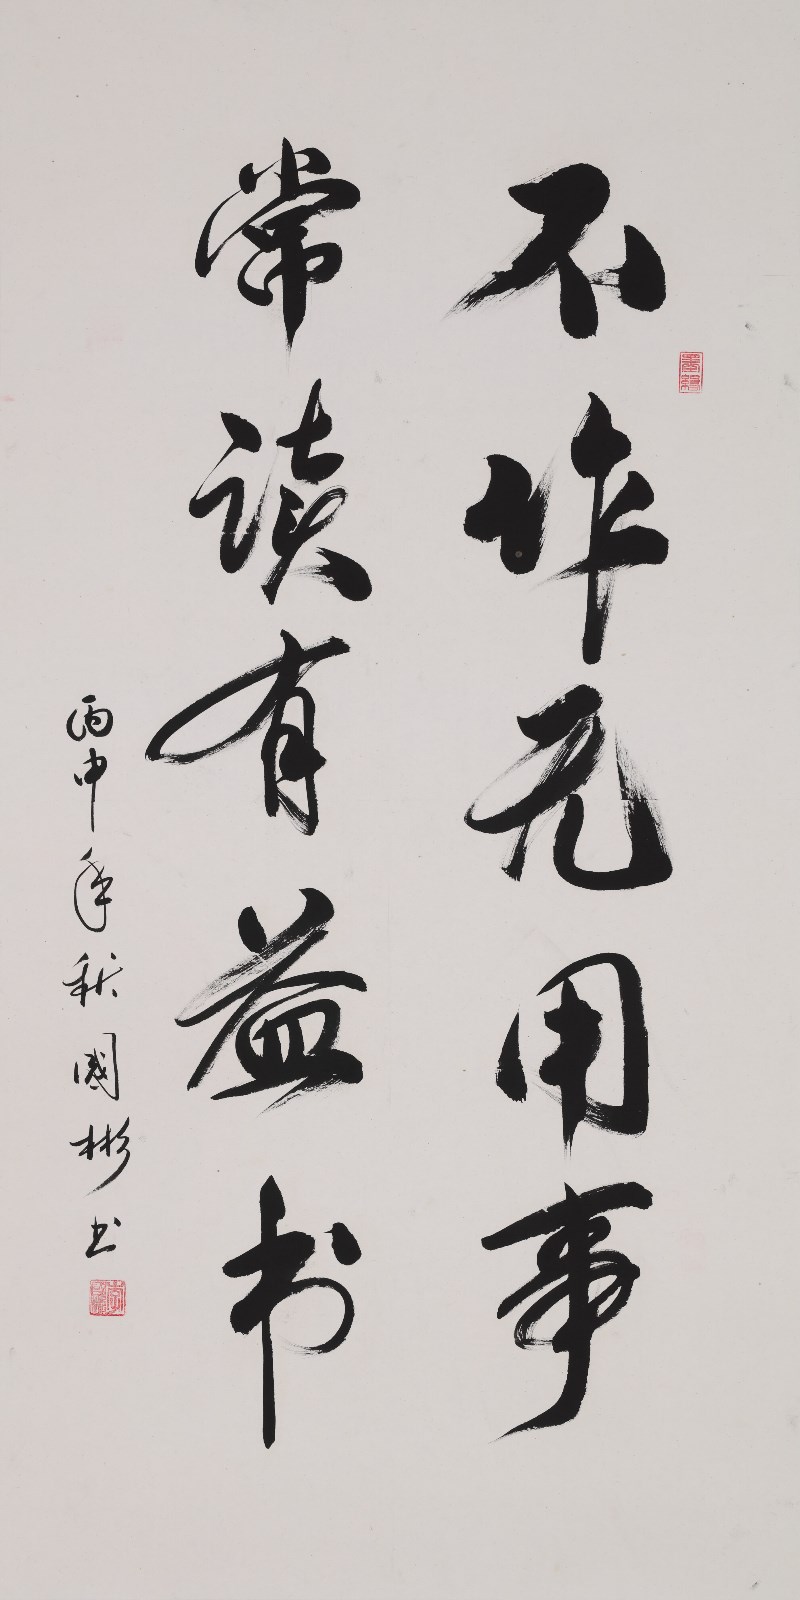 不作无用事
常读有益书
丙申年秋國彬书